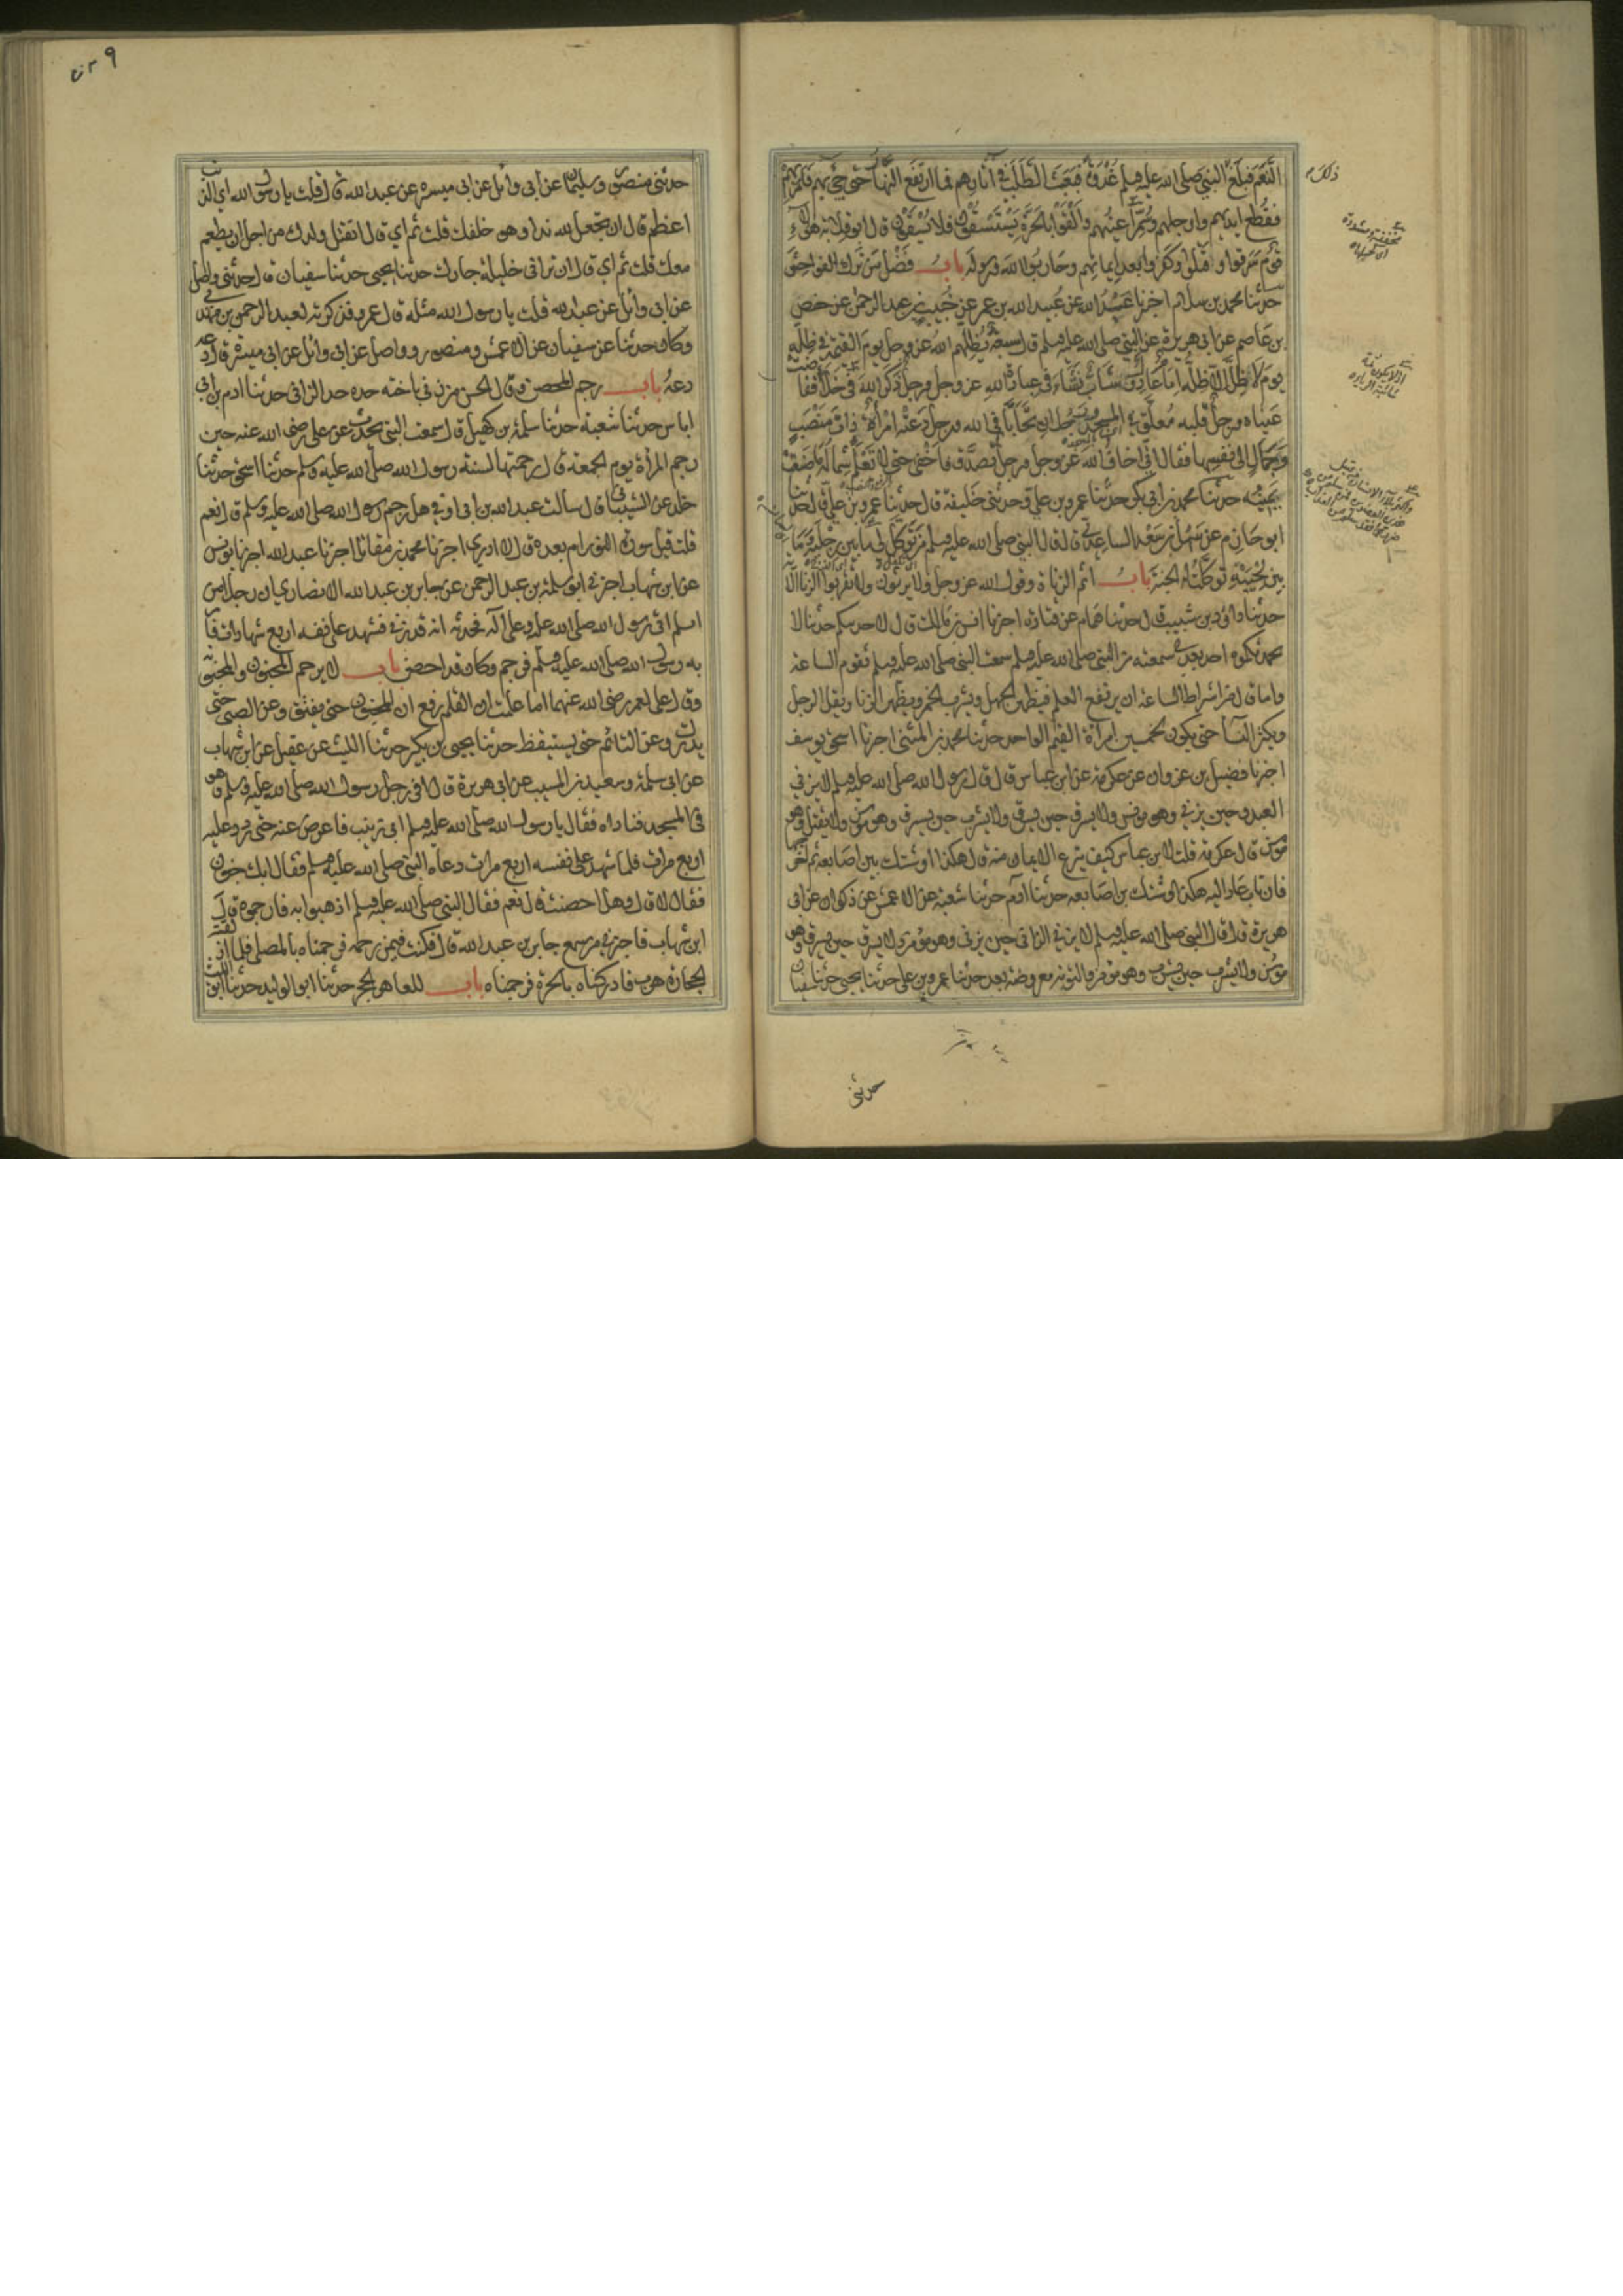 النعم فبلغ النبي صلى الله عليه وسلم غدوة فبعث الطلب في آثارهم فما ارتفع النهار حتى جيء بهم فامر بهم
فقطع ايديهم وارجلهم وسمر اعينهم والقوا بالحرة يستسقون فلا يسقون قال ابو قلابة هؤلاء
قوم سرقوا وقتلوا وكفروا بعد ايمانهم وحاربوا الله ورسوله باب فضل من ترك الفواحش
حدثنا محمد بن سلام اخبرنا عبد الله عن عبيد الله بن عمر عن خبيب بن عبد الرحمن عن حفص
بن عاصم عن ابي هريرة عن النبي صلى الله عليه وسلم قال سبعة يظلهم الله عز وجل يوم القيمة في ظله
يوم لا ظل الا ظله امام عادل وشاب نشاء في عبادة الله عز وجل ورجل ذكر الله في خلاء ففاضت
عيناه ورجل قلبه معلق في المسجد ورجلان تحابا في الله ورجل دعته امرأة ذات منصب
وجمال الى نفسها فقال اني اخاف الله عز وجل ورجل تصدق فاخفى حتى لا تعلم شماله ما صنعت
يمينه حدثنا محمد بن ابي بكر حدثنا عمر بن علي وحدثني خليفة قال حدثنا عمر بن علي قال حدثنا
ابو حازم عن سهل بن سعد الساعدي قال قال النبي صلى الله عليه وسلم من توكل لي ما بين رجليه وما
بين لحييه توكلت له الجنة باب اثم الزناة وقول الله عز وجل ولا يزنون ولا تقربوا الزنا الآية
حدثنا داود بن شبيب قال حدثنا همام عن قتادة اخبرنا انس بن مالك قال لاحدثنكم حديثا لا
يحدثكموه احد بعدي سمعته من النبي صلى الله عليه وسلم سمعت النبي صلى الله عليه وسلم لا تقوم الساعة
واما قال من اشراط الساعة ان يرفع العلم فيظهر الجهل ويشرب الخمر ويظهر الزنا ويقل الرجل
ويكثر النسا حتى يكون لخمسين امرأة القيم الواحد حدثنا محمد بن المثنى اخبرنا اسحق بن يوسف
اخبرنا فضيل بن غزوان عن عكرمة عن ابن عباس قال قال رسول الله صلى الله عليه وسلم لا يزني
العبد حين يزني وهو مؤمن ولا يسرق حين يسرق ولا يشرب حين يشرب وهو مؤمن ولا يقتل وهو
مؤمن قال عكرمة قلت لابن عباس كيف ينزع الايمان منه قال هكذا وشبك بين اصابعه ثم اخرجها
فان تاب عاد اليه هكذا وشبك بين اصابعه حدثنا آدم حدثنا شعبة عن الاعمش عن ذكوان عن ابي
هريرة قال قال النبي صلى الله عليه وسلم لا يزني الزاني حين يزني وهو مؤمن ولا يسرق حين يسرق وهو
مؤمن ولا يشرب حين يشرب وهو مؤمن والتوبة معروضة بعد حدثنا عمرو بن علي حدثنا يحيى حدثنا سفيان
حدثني
حدثني منصور وسليمان عن ابي وائل عن ابي ميسره عن عبد الله قال قلت يا رسول الله اي الذنب
اعظم قال ان تجعل لله ندا وهو خلقك قلت ثم اي قال ان تقتل ولدك من اجل ان يطعم
معك قلت ثم اي قال ان تزاني حليلة جارك حدثنا يحيى حدثنا سفيان قال حدثني واصل
عن ابي وائل عن عبد الله قلت يا رسول الله مثله قال عمرو فذكرته لعبد الرحمن بن مهدي
وكان حدثنا عن سفيان عن الاعمش ومنصور وواصل عن ابي وائل عن ابي ميسرة قال دعه
دعه باب رجم المحصن وقال الحسن من زنى باخته حده حد الزاني حدثنا ادم بن ابي
اياس حدثنا شعبة حدثنا سلمة بن كهيل قال سمعت الشعبي يحدث عن علي رضي الله عنه حين
رجم المرأة يوم الجمعة قال رجمتها لسنة رسول الله صلى الله عليه وسلم حدثنا اسحق حدثنا
خالد عن الشيباني قال سالت عبد الله بن ابي اوفى هل رجم رسول الله صلى الله عليه وسلم قال نعم
قلت قبل سورة النور ام بعده قال لا ادري اخبرنا محمد بن مقاتل اخبرنا عبد الله اخبرنا يونس
عن ابن شهاب اخبرني ابو سلمة بن عبد الرحمن عن جابر بن عبد الله الانصاري ان رجلا من
اسلم اتى رسول الله صلى الله عليه وعلى آله فحدثه انه قد زنى فشهد على نفسه اربع شهادات فامر
به رسول الله صلى الله عليه وسلم فرجم وكان قد احصن باب لا يرجم المجنون والمجنونة
وقال علي لعمر رضي الله عنهما اما علمت ان القلم رفع ان المجنون حتى يفيق وعن الصبي حتى
يدرك وعن النائم حتى يستيقظ حدثنا يحيى بن بكير حدثنا الليث عن عقيل عن ابن شهاب
عن ابي سلمة وسعيد بن المسيب عن ابي هريرة قال اتى رجل رسول الله صلى الله عليه وسلم وهو
في المسجد فناداه فقال يا رسول الله صلى الله عليه وسلم اني زنيت فاعرض عنه حتى ردد عليه
اربع مرات فلما شهد على نفسه اربع مرات دعاه النبي صلى الله عليه وسلم فقال ابك جنون
فقال لا قال وهل احصنت قال نعم فقال النبي صلى الله عليه وسلم اذهبوا به فارجموه قال
ابن شهاب فاخبرني من سمع جابر بن عبد الله قال فكنت فيمن رجمه فرجمناه بالمصلى فلما اذلقته
الحجارة هرب فادركناه بالحرة فرجمناه باب للعاهر الحجر حدثنا ابو الوليد حدثنا الليث